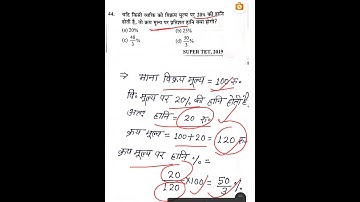 44. यदि किसी व्यक्ति को विक्रय मूल्य पर 20% की हानि
होती है, तो क्रय मूल्य पर प्रतिशत हानि क्या होगी?
(a) 20% (b) 25%
(c) 40/3 % (d) 50/3 %
SUPER TET, 2019
→ माना विक्रय मूल्य = 100 रु॰
वि॰ मूल्य पर 20% की हानि होती है,
अतः हानि = 20 रु॰
क्रय मूल्य = 100+20 = 120 रु॰
क्रय मूल्य पर हानि % =
20/120 ×100 = 50/3 %